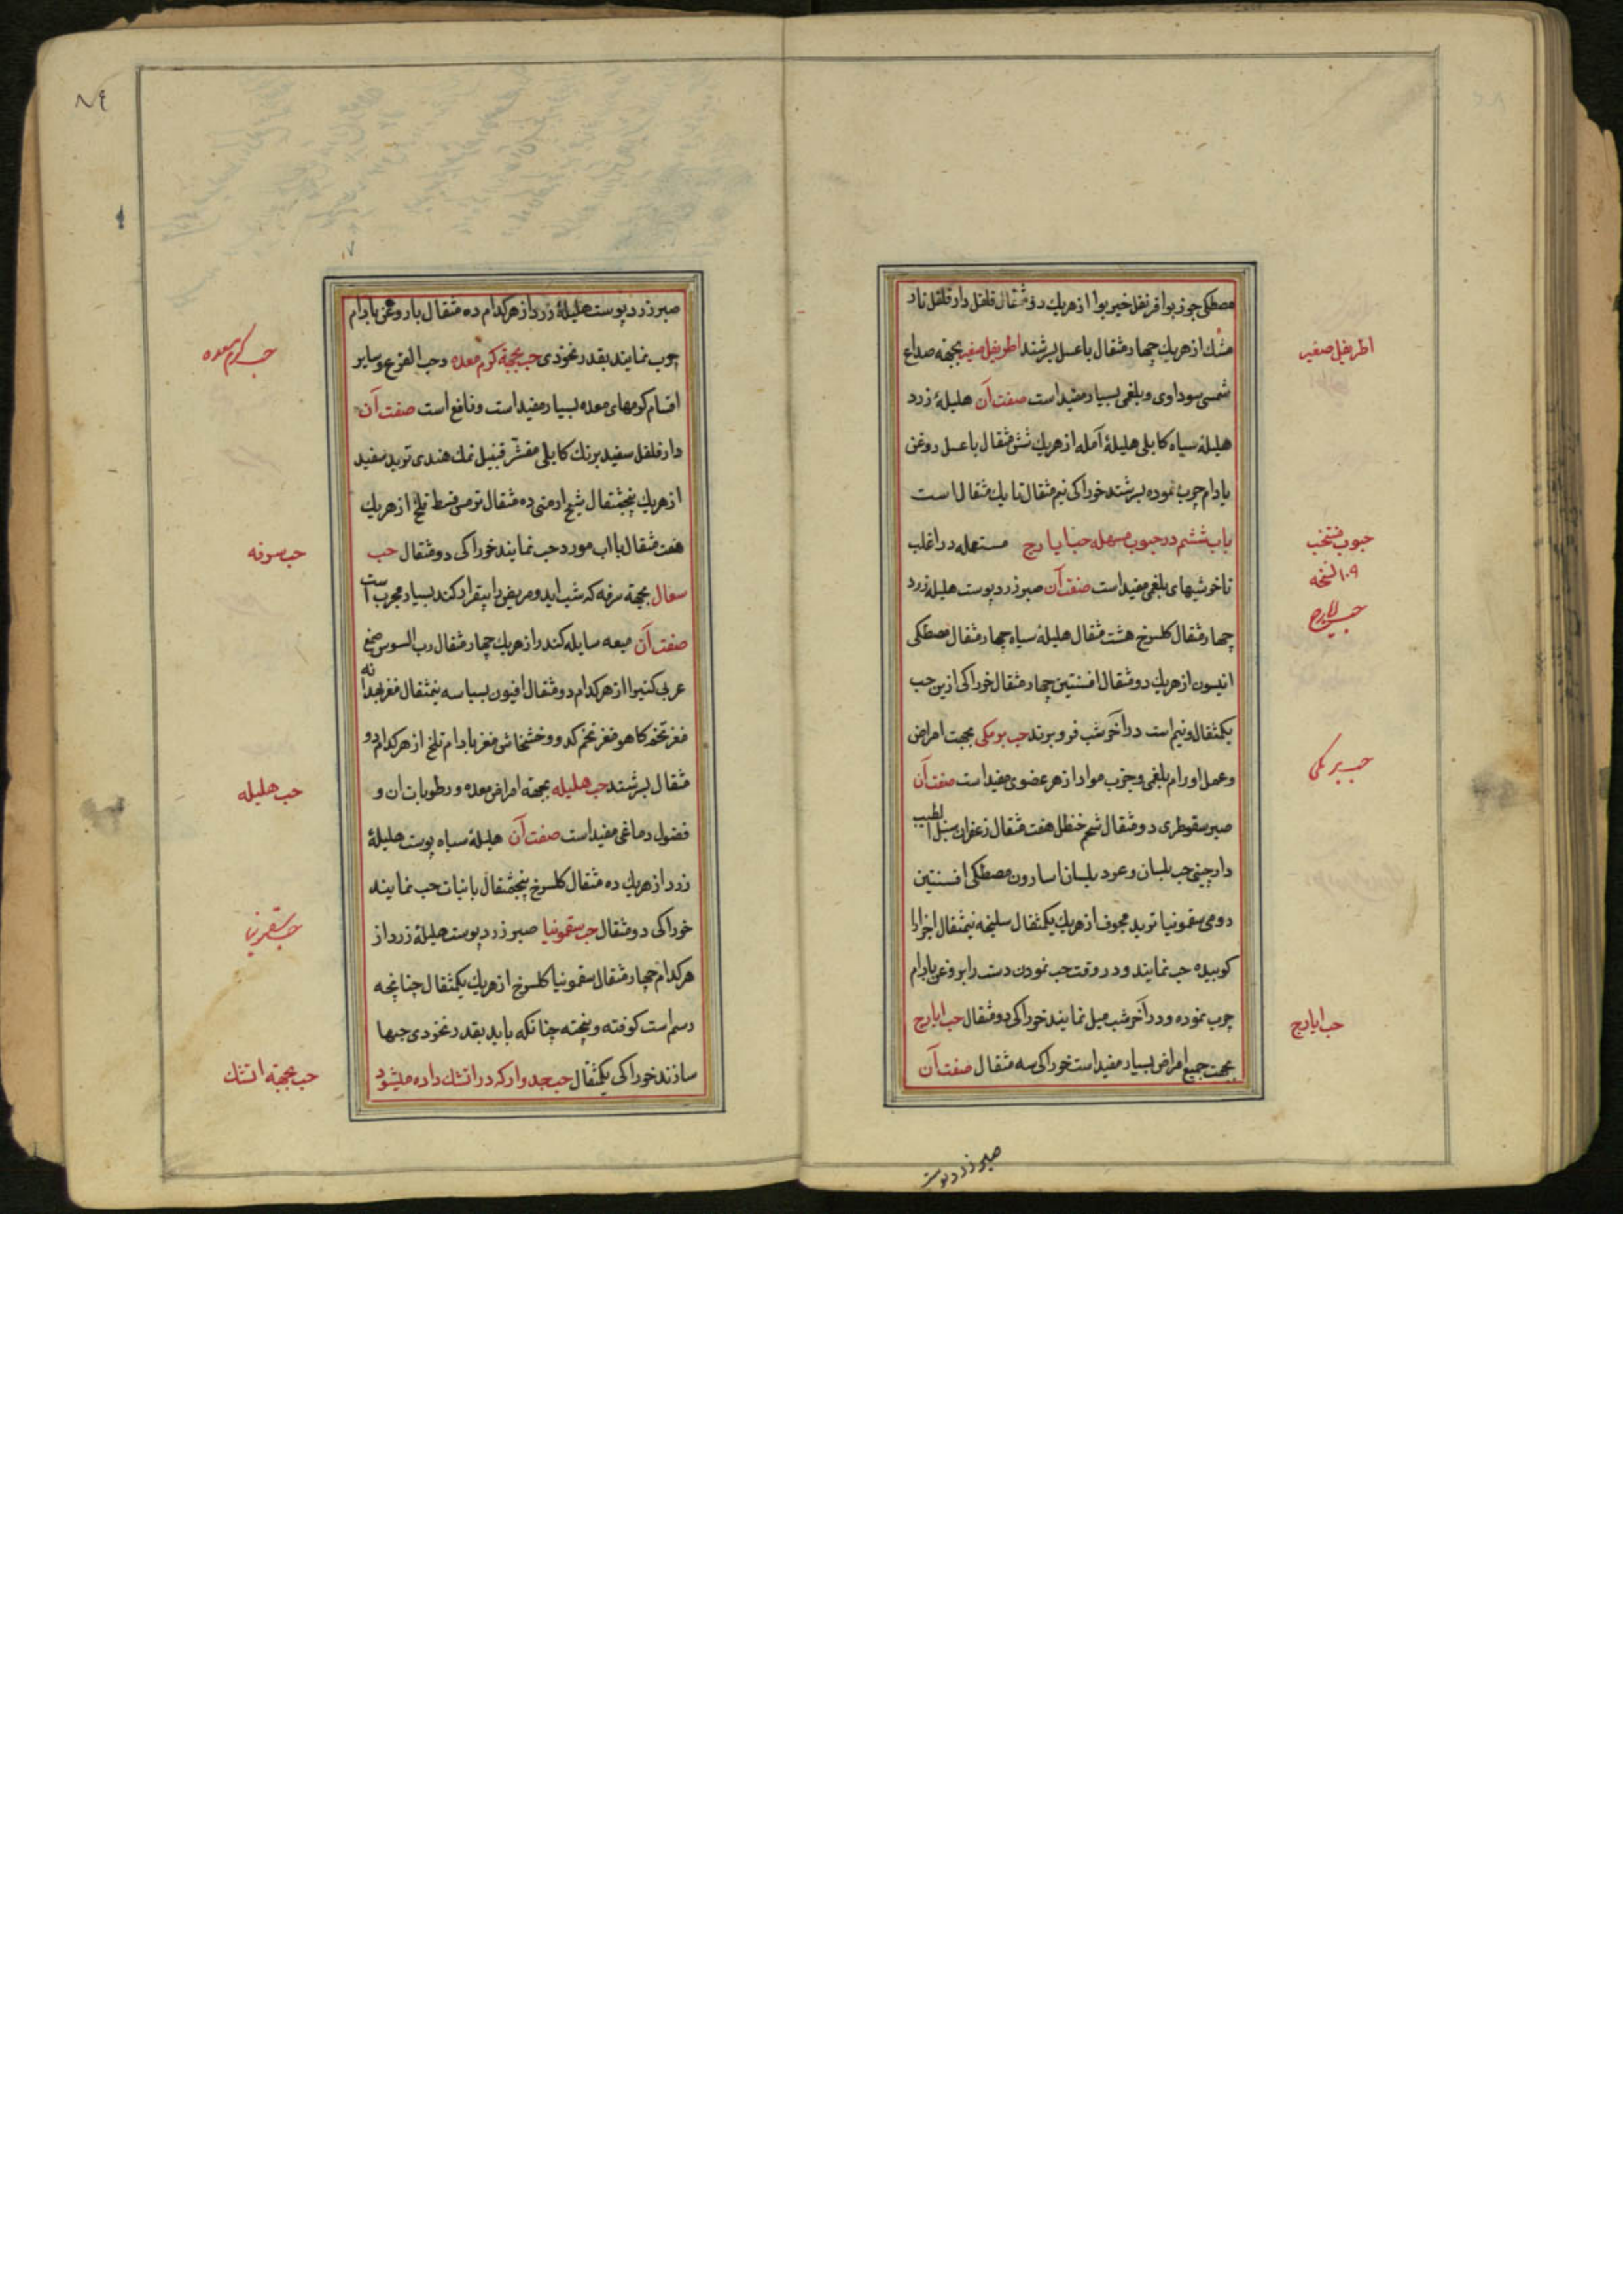 مصطکی جوز بوا قرنفل خیر بوا از هریك دو مثقال فلفل دار فلفل نار
مشك از هریك چهار مثقال باعسل بسرشند اطریفل صغیر بجهته صداع
اطریفل صغیر
شمسی سوداوی و بلغمی بسیار مفید است صفت آن هلیلهٔ زرد
هلیلهٔ سیاه کابلی هلیلهٔ آمله از هریك شش مثقال باعسل روغن
بادام چرب نموده بسرشند خوراکی نیم مثقال تا یك مثقال است
باب ششم در حبوب مسهله حب ایارج مستعمله در اغلب
حبوب منتخب
۱۰۹ نسخه
ناخوشیهای بلغمی مفید است صفت آن صبر زرد پوست هلیله زرد
حب ایارج
چهار مثقال کلسرخ هشت مثقال هلیلهٔ سیاه چهار مثقال مصطکی
انیسون از هریك دو مثقال افسنتین چهار مثقال خوراکی ازین حب
یکمثقال و نیم است در آخر شب فرو برند حب برمکی بجهت امراض
حب برمکی
و عمل اورام بلغمی و جذب مواد از هر عضوی مفید است صفت آن
صبر سقوطری دو مثقال شحم حنظل هفت مثقال زعفران سنبل الطیب
دارچینی حب بلسان و عود بلسان اسارون مصطکی افسنتین
رومی سقمونیا تربد مجوف از هریك یکمثقال سلیخه نیمثقال اجزا را
کوبیده حب نمایند و در وقت حب نمودن دست را بروغن بادام
چرب نموده و در آخر شب میل نمایند خوراکی دو مثقال حب ایارج
حب ایارج
بجهت جمیع امراض بسیار مفید است خوراکی سه مثقال صفت آن
صبر زرد پوست
۸٤
صبر زرد پوست هلیلهٔ زرد از هرکدام ده مثقال با روغن بادام
چرب نمایند بقدر نخودی حب بجهة کرم معده و حب القرع و سایر
حب کرم معده
اقسام کرمهای معده بسیار مفید است و نافع است صفت آن
دار فلفل سفید برنك کابلی مقشر قنبیل نمك هندی تربد سفید
از هریك پنجمثقال شیح ارمنی ده مثقال ترمس قسط تلخ از هریك
هفت مثقال با اب مورد حب نمایند خوراکی دو مثقال حب
حب سرفه
سعال بجهة سرفه که شب اید و مریض را بیقرار کند بسیار مجرب است
صفت آن میعه سایله کندر از هریك چهار مثقال رب السوس صمغ
عربی کتیرا از هرکدام دو مثقال افیون بسباسه نیمثقال مغز بهدانه
مغز تخم کاهو مغز تخم کدو و خشخاش مغز بادام تلخ از هرکدام دو
مثقال بسرشند حب هلیله بجهة امراض معده و رطوبات ان و
حب هلیله
فضول دماغی مفید است صفت آن هلیلهٔ سیاه پوست هلیلهٔ
زرد از هریك ده مثقال کلسرخ پنجمثقال با نبات حب نمایند
خوراکی دو مثقال حب سقمونیا صبر زرد پوست هلیلهٔ زرد از
حب سقمونیا
هرکدام چهار مثقال سقمونیا کلسرخ از هریك یکمثقال چنانچه
رسم است کوفته و پخته چنانکه باید بقدر نخودی حبها
سازند خوراکی یکمثقال حب جدوار که در اتشك داده میشود
حب بجهة اتشك